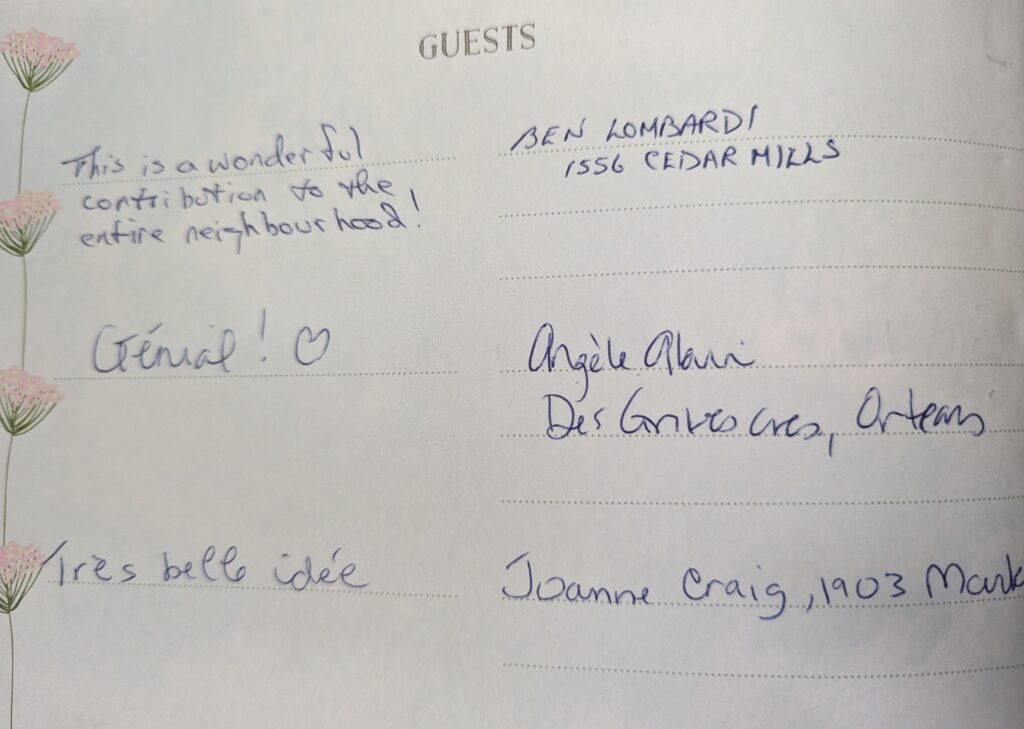 GUESTS
This is a wonderful
contribution to the
entire neighbourhood!
BEN LOMBARDI
1556 CEDAR MILLS
Génial! ♡
Angèle
Des Grives Cres, Orleans
Très belle idée
Joanne Craig, 1903